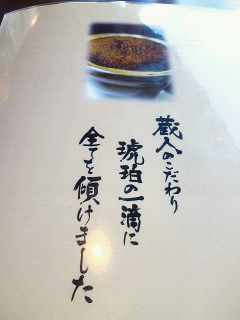 蔵人のこだわり
琥珀の一滴に
全てを傾けました